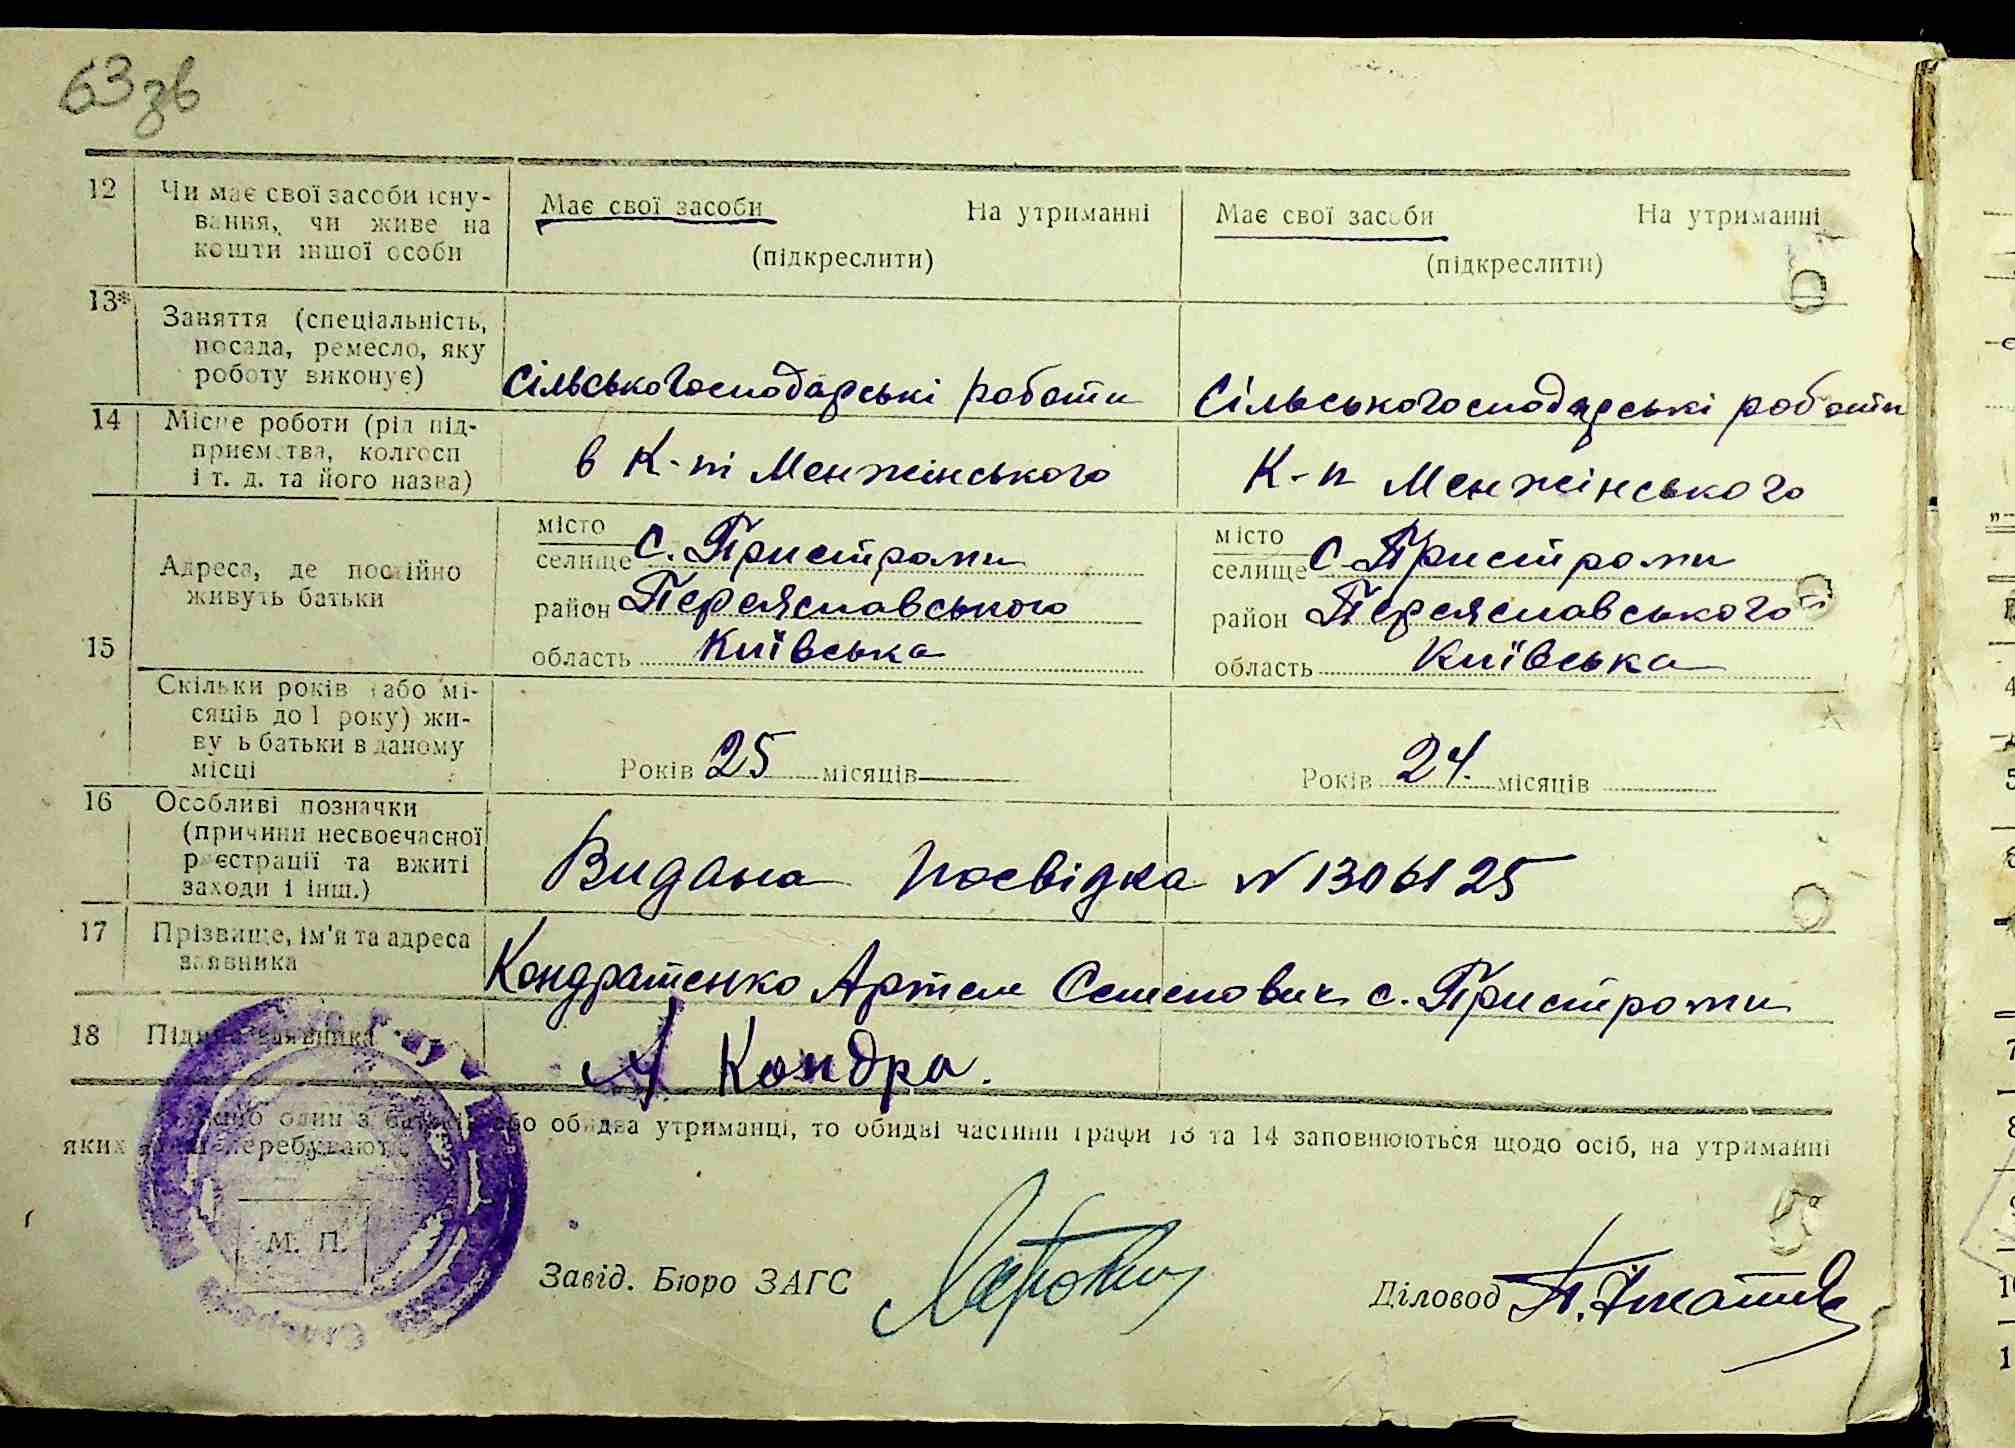 63зв
12 Чи має свої засоби існу-
вання, чи живе на
кошти іншої особи
Має свої засоби На утриманні
(підкреслити)
Має свої засоби На утриманні
(підкреслити)
13* Заняття (спеціальність,
посада, ремесло, яку
роботу виконує)
Сільськогосподарські роботи
Сільськогосподарські роботи
14 Місце роботи (рід під-
приємства, колгосп
і т. д. та його назва)
в К-пі Менжінського
К-п Менжінського
15 Адреса, де постійно
живуть батьки
місто
селище с. Пристроми
район Переяславського
область Київська
місто
селище с. Пристроми
район Переяславського
область Київська
Скільки років (або мі-
сяців до 1 року) жи-
вуть батьки в даному
місці
Років 25 місяців
Років 24. місяців
16 Особливі позначки
(причини несвоєчасної
реєстрації та вжиті
заходи і інш.)
Видана посвідка № 1306125
17 Прізвище, ім'я та адреса
заявника
Кондратенко Артем Семенович с. Пристроми
18 Підпис заявника
А Кондра.
один з батьків або обидва утриманці, то обидві частини графи 13 та 14 заповнюються щодо осіб, на утриманні
яких перебувають.
М. П.
Завід. Бюро ЗАГС
Діловод